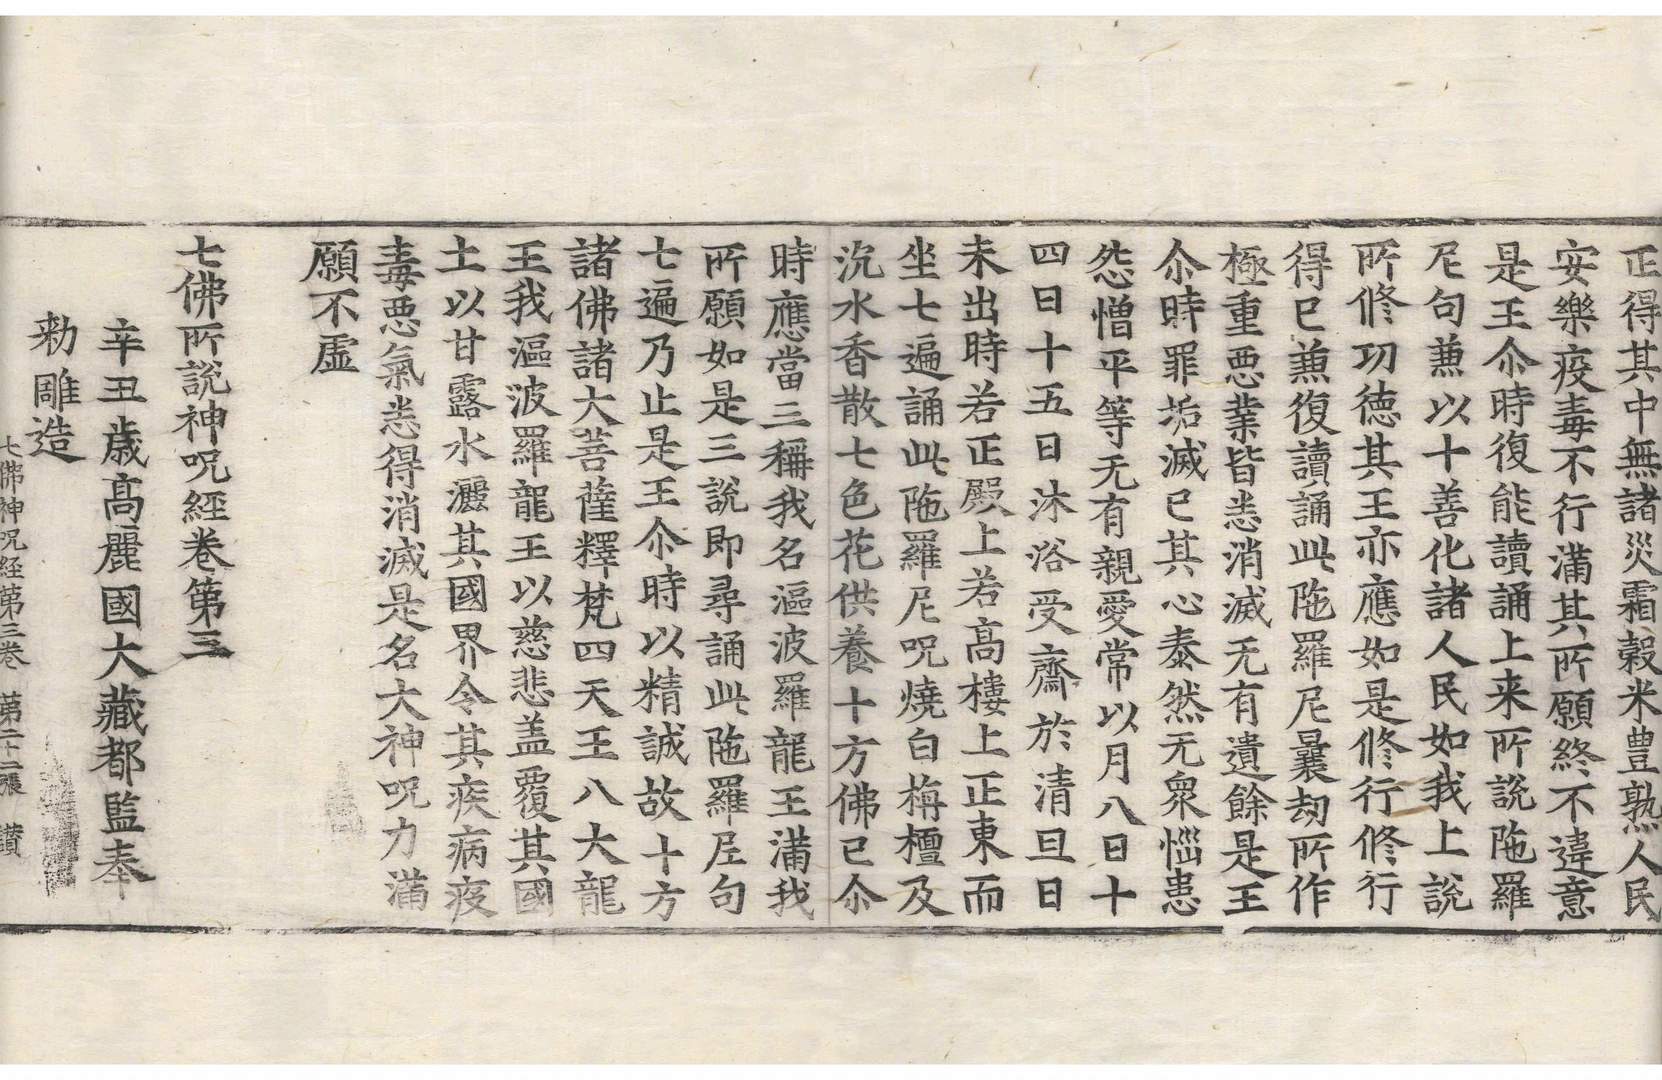 正得其中無諸災霜穀米豊熟人民
安樂疫毒不行滿其所願終不違意
是王尒時復能讀誦上来所說陁羅
尼句兼以十善化諸人民如我上說
所修功德其王亦應如是修行修行
得已兼復讀誦此陁羅尼曩劫所作
極重悪業皆悉消滅无有遺餘是王
尒時罪垢滅已其心泰然无衆惱患
怨憎平等无有親愛常以月八日十
四日十五日沐浴受齋於清旦日
未出時若正殿上若高樓上正東而
坐七遍誦此陁羅尼呪燒白栴檀及
沉水香散七色花供養十方佛已尒
時應當三稱我名漚波羅龍王滿我
所願如是三說即尋誦此陁羅尼句
七遍乃止是王尒時以精誠故十方
諸佛諸大菩薩釋梵四天王八大龍
王我漚波羅龍王以慈悲盖覆其國
土以甘露水灑其國界令其疾病疫
毒悪氣悉得消滅是名大神呪力滿
願不虛
七佛所說神呪經卷第三
辛丑歲高麗國大藏都監奉
勑雕造
七佛神呪経第三卷 第二十二張 讃